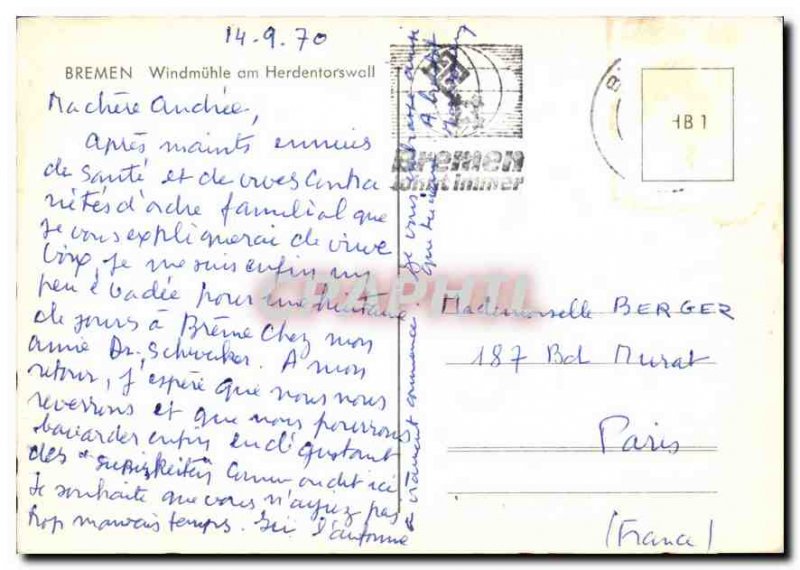 14-9.70
BREMEN Windmühle am Herdentorswall
Ma chère Andrée,
Après maints ennuis
de Santé et de vives Contra
riétés d'ordre familial que
je vous expliquerai de vive
Voix, je me suis enfin un
peu évadée pour une huitaine
de jours à Brême chez mon
amie Dr. A mon
retour, j'espère que nous nous
reverrons et que nous pourrons
bavarder enfin en dégustant
des comme on dit ici
Je souhaite que vous n'ayiez pas
trop mauvais temps. Ici l'automne
vraiment commence Je vous embrasse
Bremen
lohnt immer
HB 1
Mademoiselle BERGER
187 Bd. Murat
Paris
(France)
CPAPHIL